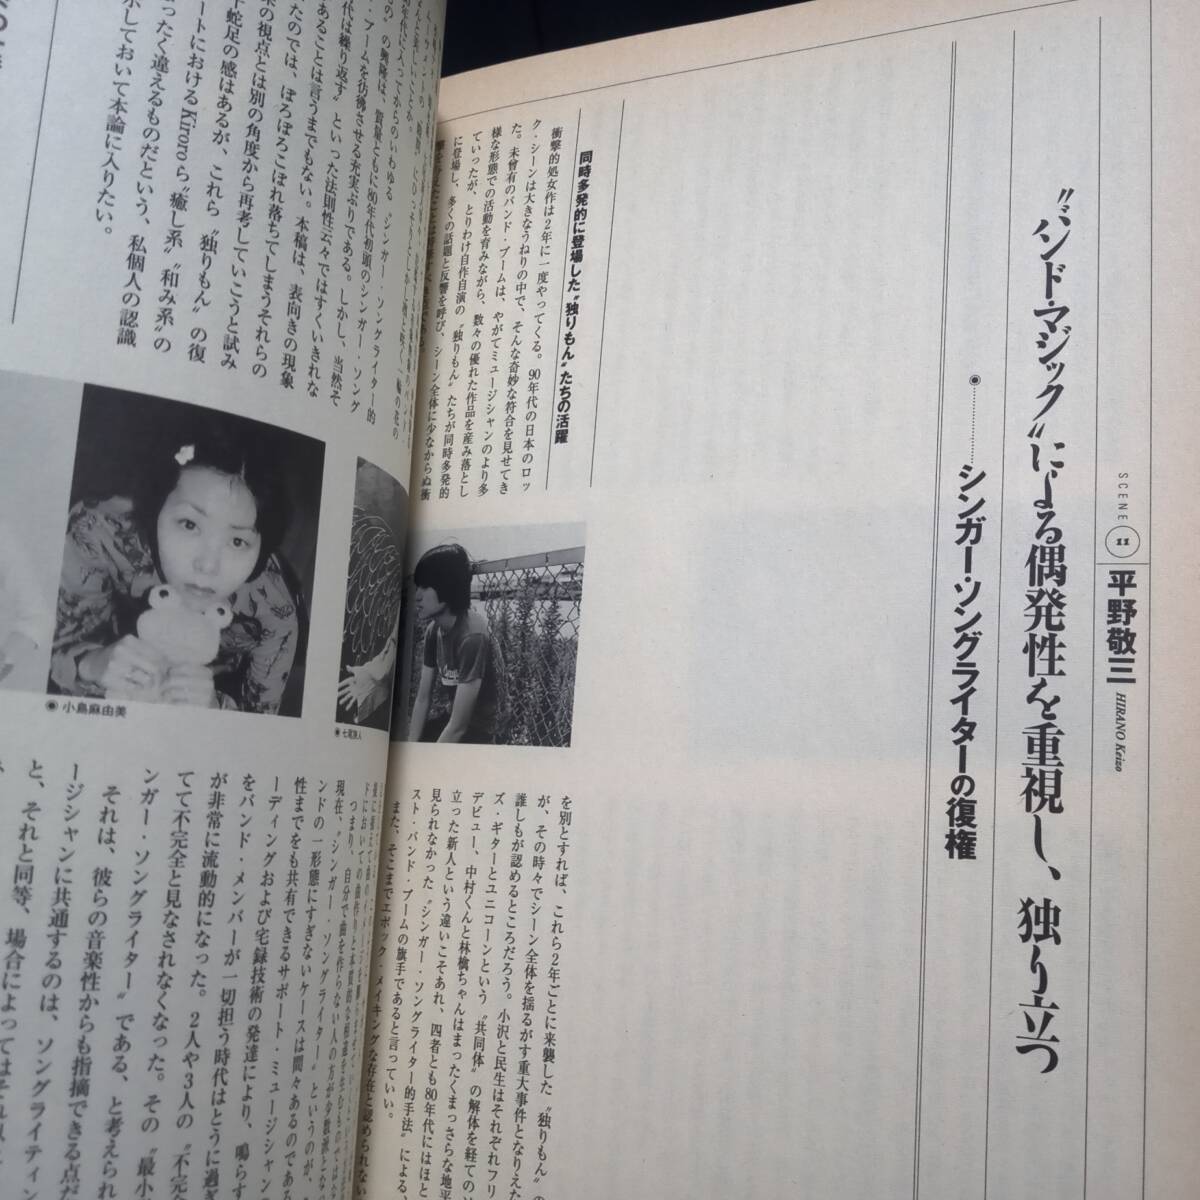 SCENE 11 平野敬三 HIRANO Keizo
“バンド・マジック”による偶発性を重視し、独り立つ
シンガー・ソングライターの復権
同時多発的に登場した“独りもん”たちの活躍
衝撃的処女作は2年に一度やってくる。90年代の日本のロッ
ク・シーンは大きなうねりの中で、そんな奇妙な符合を見せてき
た。未曾有のバンド・ブームは、やがてミュージシャンのより多
様な形態での活動を育みながら、数々の優れた作品を産み落とし
ていったが、とりわけ自作自演の“独りもん”たちが同時多発的
に登場し、多くの話題と反響を呼び、シーン全体に少なからぬ衝
を別とすれば、これら2年ごとに来襲した“独りもん”の
が、その時々でシーン全体を揺るがす重大事件となりえた
誰しもが認めるところだろう。小沢と民生はそれぞれフリ
ズ・ギターとユニコーンという“共同体”の解体を経ての
デビュー、中村くんと林檎ちゃんはまったくまっさらな地平
立った新人という違いこそあれ、四者とも80年代にはほと
見られなかった“シンガー・ソングライター的手法”による、
スト・バンド・ブームの旗手であると言っていい。
また、そこまでエポック・メイキングな存在と認められない
七尾旅人
小島麻由美
の興隆は、質量ともに80年代初頭のシンガー・ソング
ブームを彷彿させる充実ぶりである。しかし、当然そ
代は繰り返す”といった法則性云々ではすくいきれな
あることは言うまでもない。本稿は、表向きの現象
たのでは、ぽろぽろこぼれ落ちてしまうそれらの
来の視点とは別の角度から再考していこうと試み
干蛇足の感はあるが、これら“独りもん”の復
ートにおけるKiroroら“癒し系”“和み系”の
ったく違えるものだという、私個人の認識
示しておいて本論に入りたい。
つまり、自分で曲を作らない人の方が少数派とな
現在、“シンガー・ソングライター”というのが、
ンドの一形態にすぎないケースは間々あるのである
性までをも共有できるサポート・ミュージシャン
ーディングおよび宅録技術の発達により、鳴らす
をバンド・メンバーが一切担う時代はとうに過ぎ
が非常に流動的になった。2人や3人の“不完全
てて不完全と見なされなくなった。その“最小
ンガー・ソングライター”である、と考えられ
それは、彼らの音楽性からも指摘できる点だ
ージシャンに共通するのは、ソングライティン
と、それと同等、場合によってはそれ以